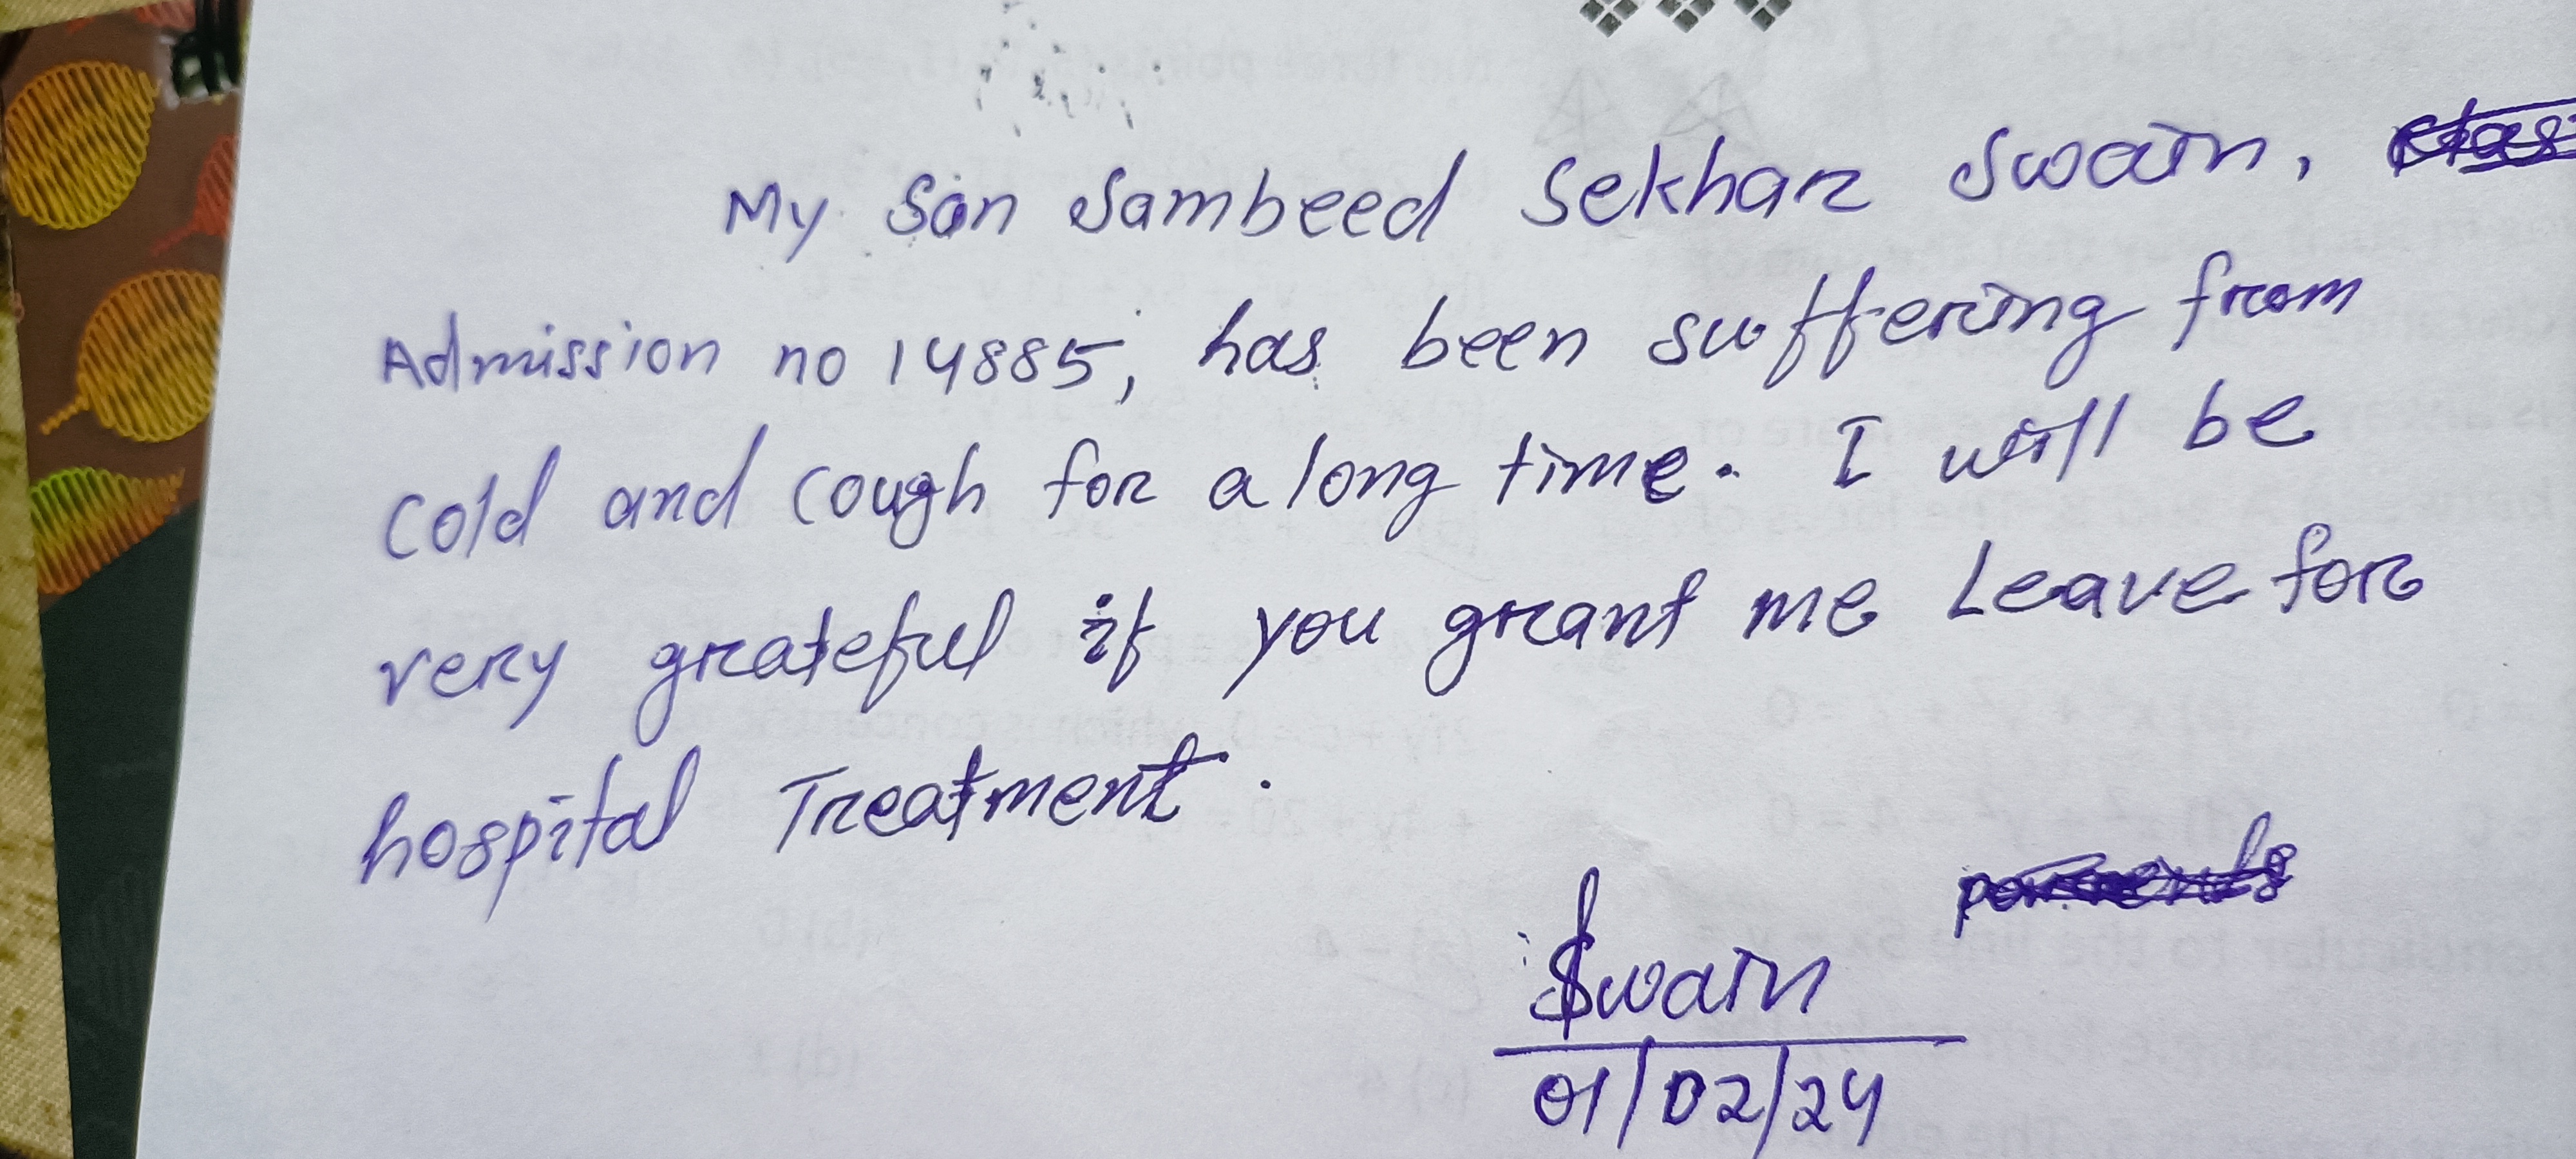 My Son Sambeed Sekhar Swain,
Admission no 14885, has been suffering from
cold and cough for a long time. I will be
very grateful if you grant me Leave for
hospital Treatment.
Swain
01/02/24